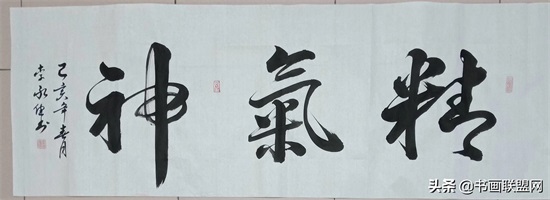 精氣神
己亥年春月
李永书
头条 @书画联盟网